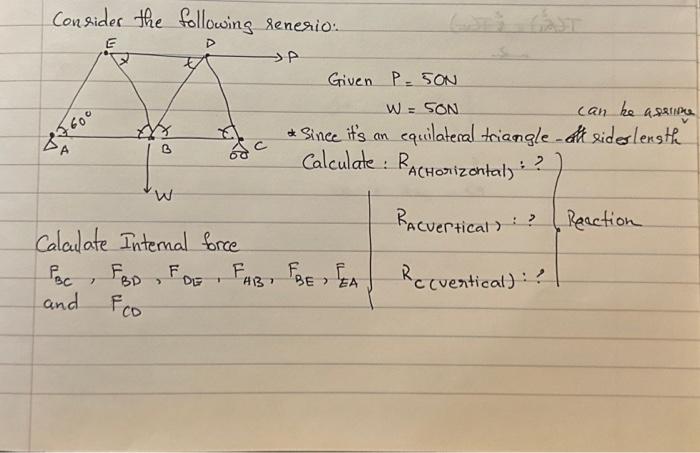 Consider the following senerio:
E D → P
Given P = 50N
60°
W = 50N
can be assume
A B C
* Since it's an equilateral triangle - sides length
Calculate : R A(Horizontal) : ?
W
R A(vertical) : ? Reaction
Calculate Internal force
F BC , F BD , F DE , F AB , F BE , F EA
R C(vertical) : ?
and F CD